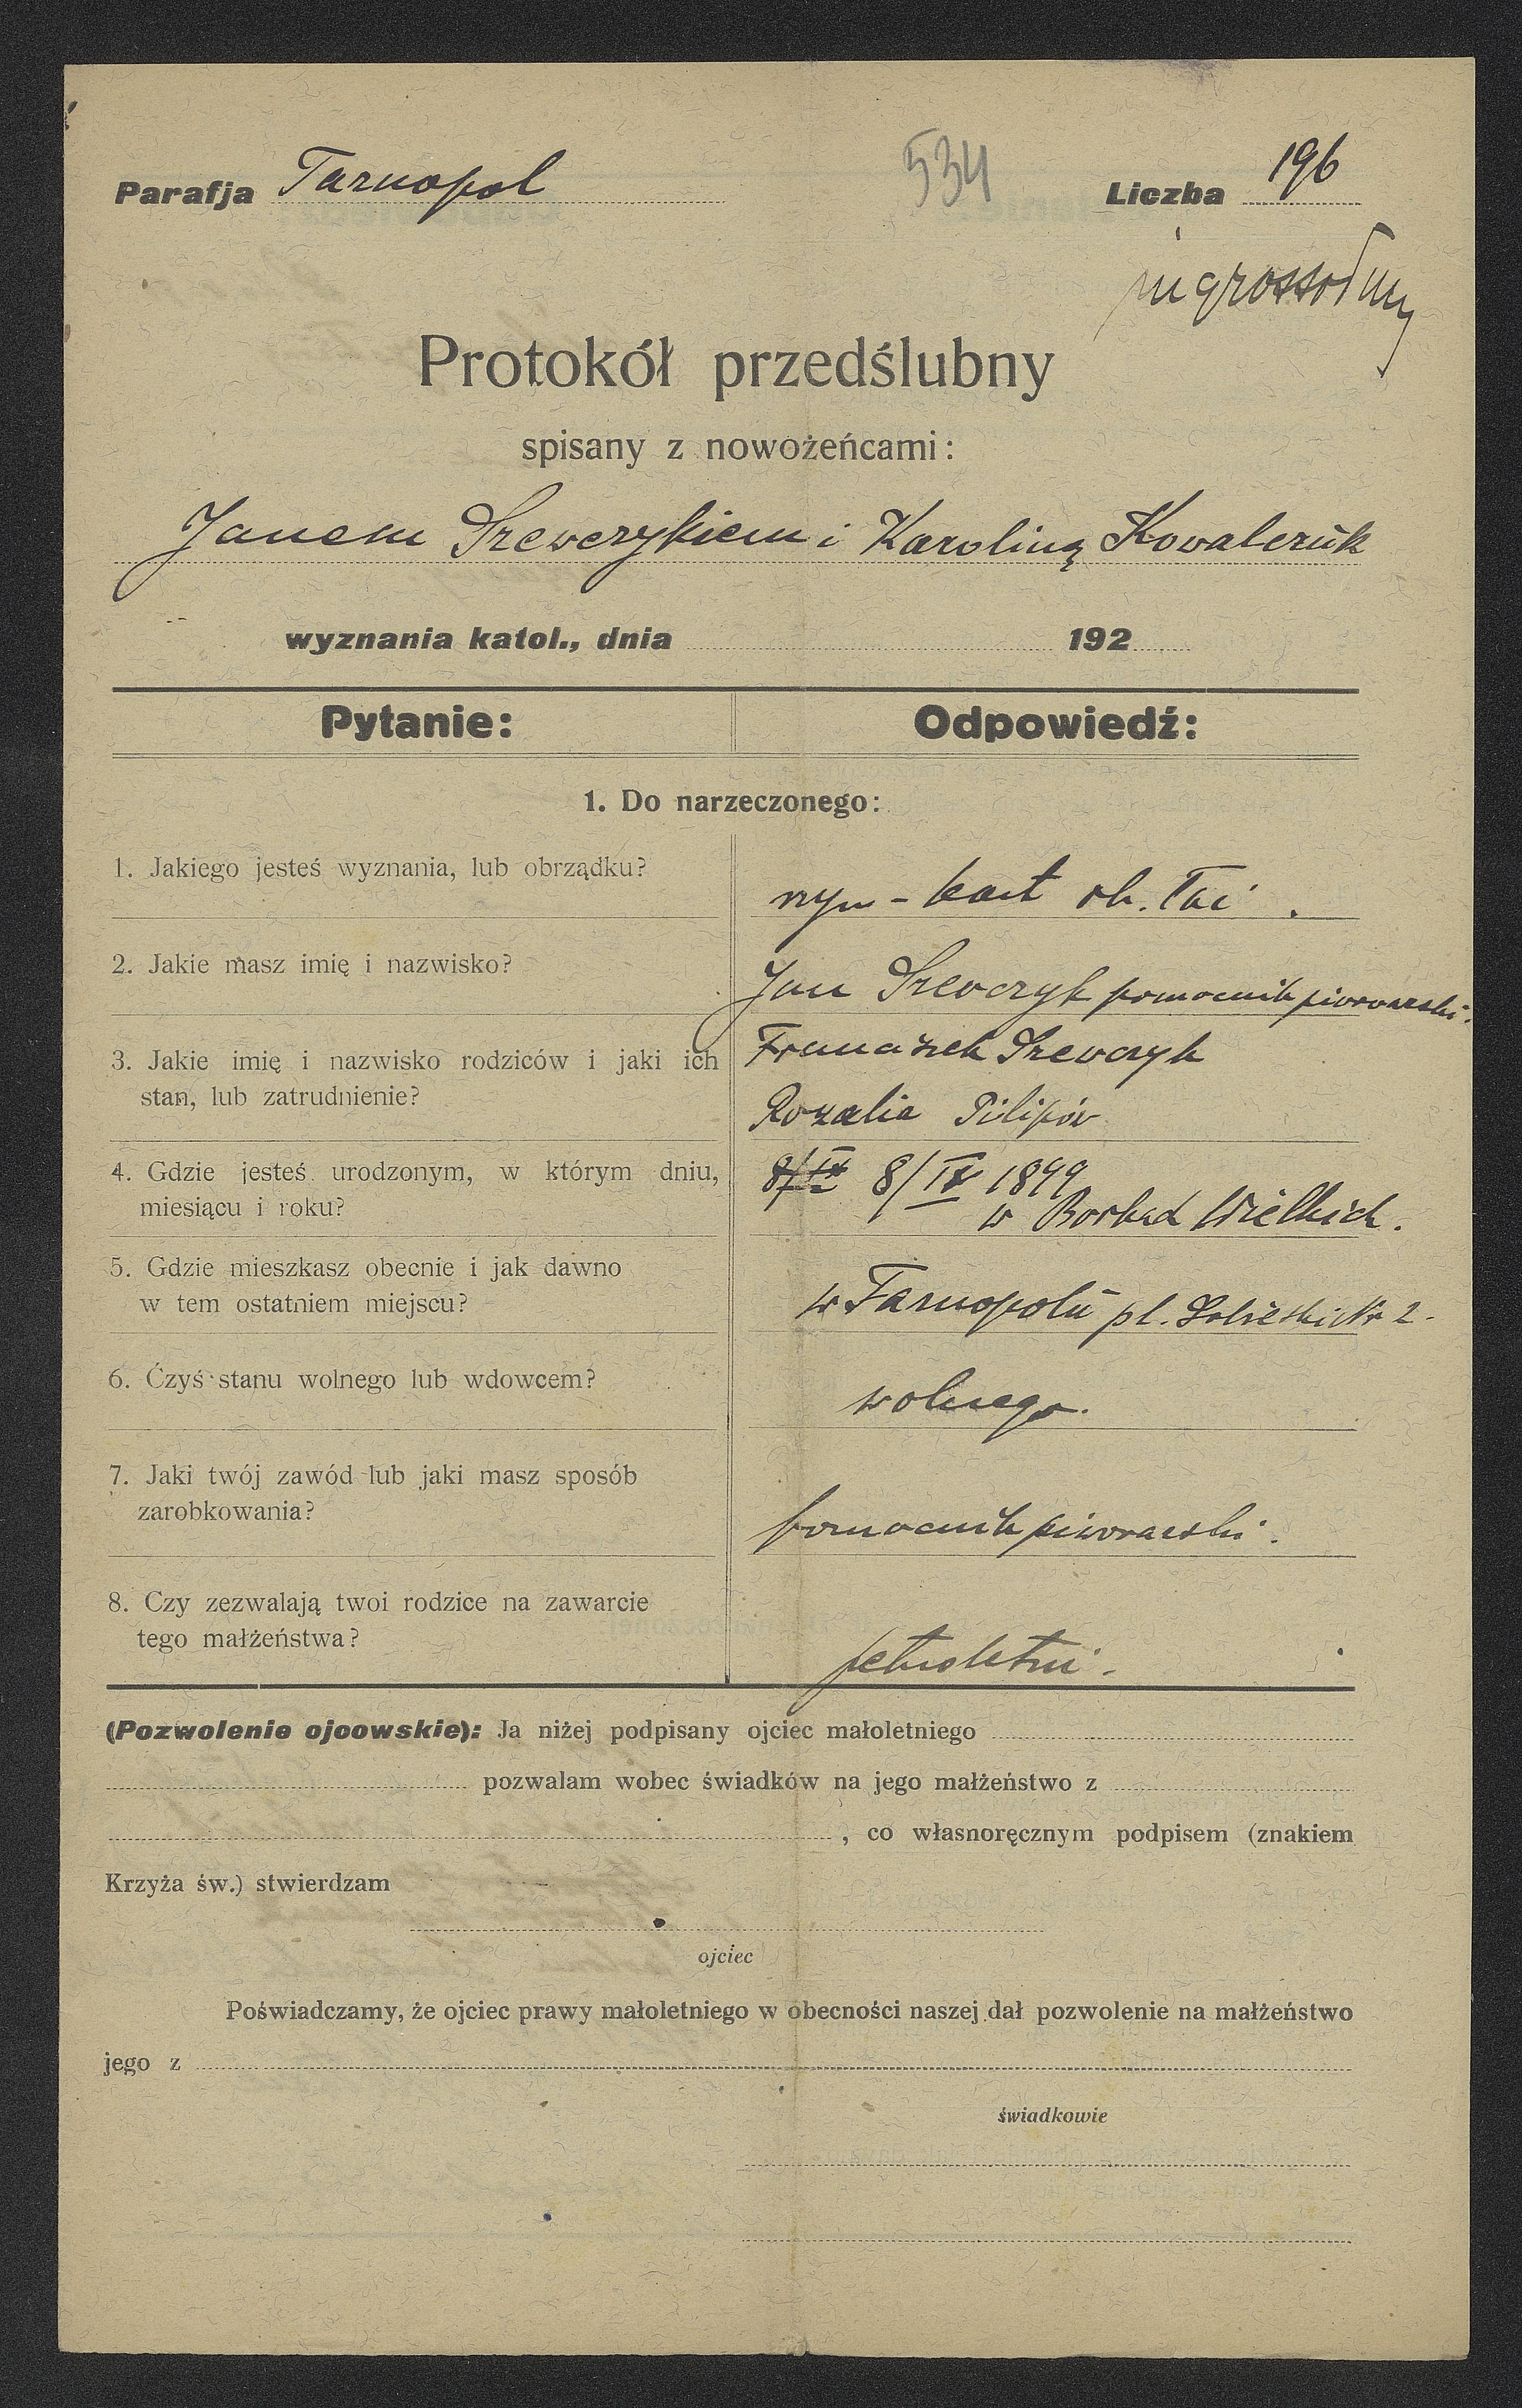 Parafja Tarnopol 534 Liczba 196
ingrossowany
Protokół przedślubny
spisany z nowożeńcami:
Janem Szewczykiem i Karoliną Kowalczuk
wyznania katol., dnia 192
Pytanie: Odpowiedź:
1. Do narzeczonego:
1. Jakiego jesteś wyznania, lub obrządku?
rzym - kat ob. łac.
2. Jakie masz imię i nazwisko?
Jan Szewczyk pomocnik piwowarski.
3. Jakie imię i nazwisko rodziców i jaki ich
stan, lub zatrudnienie?
Franciszek Szewczyk
Rozalia Pilipów
4. Gdzie jesteś urodzonym, w którym dniu,
miesiącu i roku?
8/IX 8/IX 1899
w Borkach Wielkich.
5. Gdzie mieszkasz obecnie i jak dawno
w tem ostatniem miejscu?
w Tarnopolu pl. Sobieski Nr 2.
6. Czyś stanu wolnego lub wdowcem?
wolnego.
7. Jaki twój zawód lub jaki masz sposób
zarobkowania?
pomocnik piwowarski.
8. Czy zezwalają twoi rodzice na zawarcie
tego małżeństwa?
pełnoletni.
(Pozwolenie ojcowskie): Ja niżej podpisany ojciec małoletniego
pozwalam wobec świadków na jego małżeństwo z
, co własnoręcznym podpisem (znakiem
Krzyża św.) stwierdzam
ojciec
Poświadczamy, że ojciec prawy małoletniego w obecności naszej dał pozwolenie na małżeństwo
jego z
świadkowie